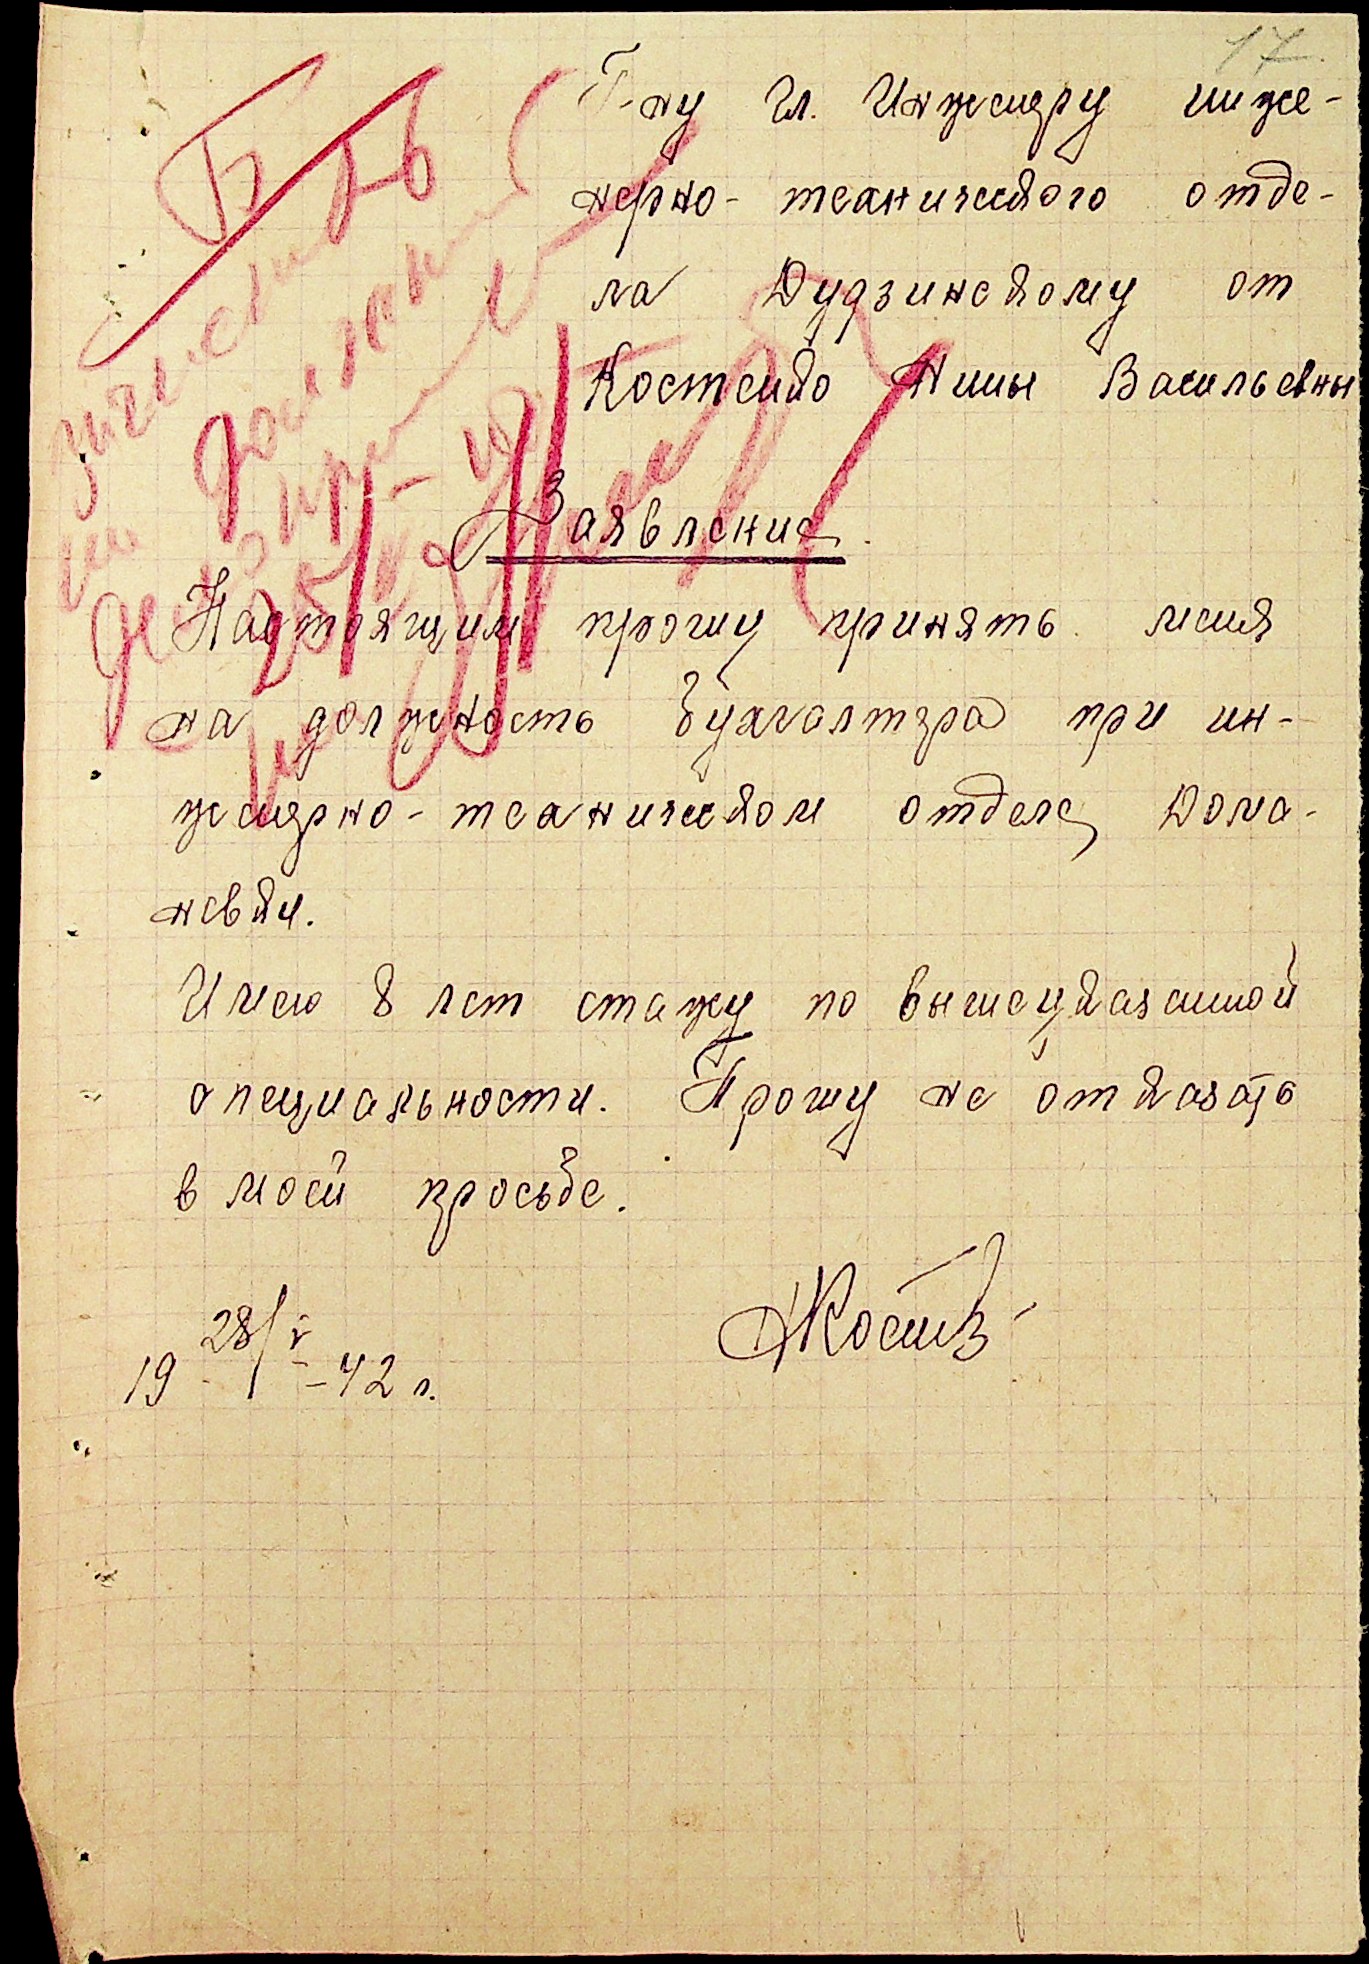 17.
Г-ну Гл. Инженеру инже-
нерно-технического отде-
ла Дудзинскому от
Костенко Нины Васильевны
Заявление.
Настоящим прошу принять меня
на должность бухгалтера при ин-
женерно-техническом отделе Дома-
невки.
Имею 8 лет стажу по вышеуказанной
специальности. Прошу не отказать
в моей просьбе.
19 28/V - 42 г.
Зачислить
на должность